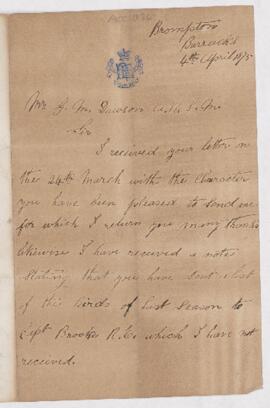 Brompton
Barracks
4th April 1875
Mr J. M. Dawson
Sir
I received your letter on
the 24th March with the character
you have been pleased to send me
for which I return you many thanks
likewise I have received a note
stating that you have sent a list
of the birds of last season to
Capt Brooke R.E. which I have not
received.